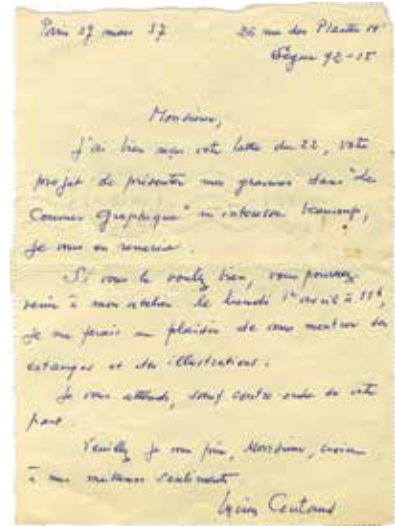 Paris 27 mars 57 26 rue des Plantes 14e
Ségur 92-15
Monsieur,
J'ai bien reçu votre lettre du 22, votre
projet de présenter mes gravures dans "Le
Courrier Graphique" m'intéresse beaucoup,
Je vous en remercie.
Si vous le voulez bien, vous pourriez
venir à mon atelier le lundi 1er avril à 11h,
Je me ferais un plaisir de vous montrer des
estampes et des illustrations.
Je vous attends, sauf contre-ordre de votre
part.
Veuillez je vous prie, Monsieur, croire
à mes meilleurs sentiments
Lucien Coutaud